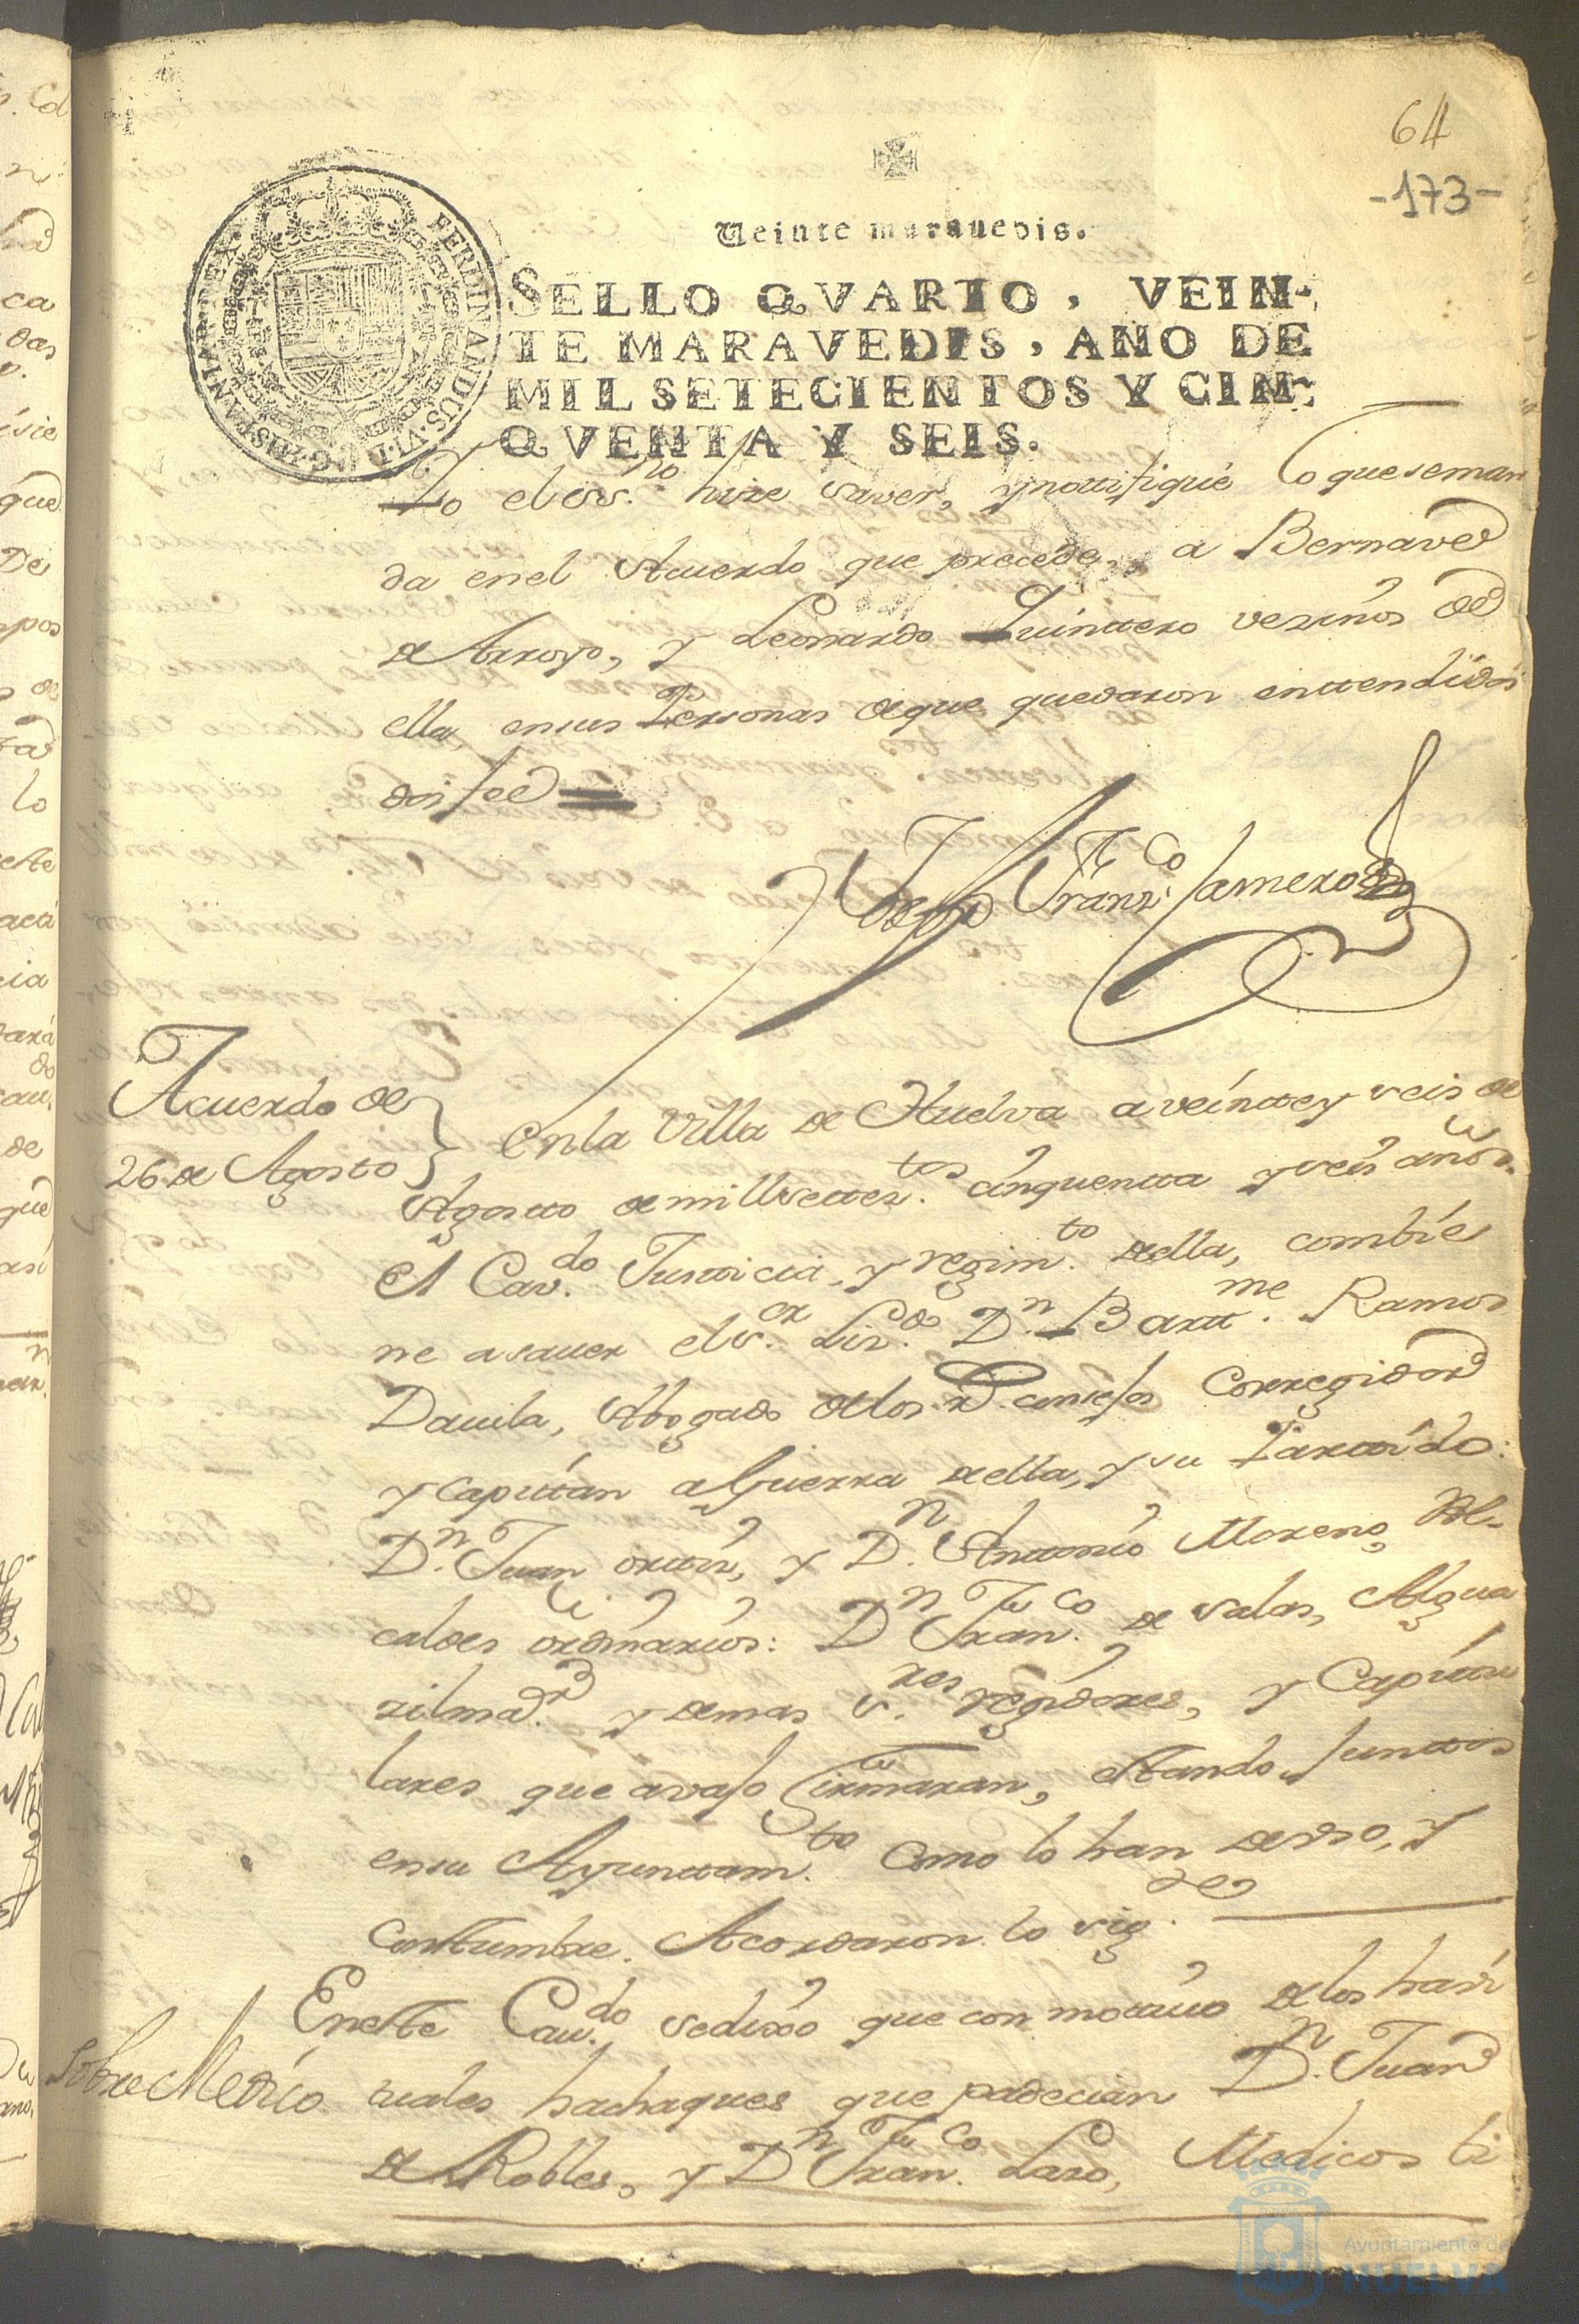 64
-173-
Veinte maravedis.
FERDINANDUS. VI. D. G. HISPANIAR. REX.
SELLO QVARTO, VEIN-
TE MARAVEDIS, AÑO DE
MIL SETECIENTOS Y CIN-
QVENTA Y SEIS.
Yo el ess.no hize saver, y nottifiqué lo que se man
da en el Acuerdo que precede, a Bernave
de Arroyo, y Leonardo Quinttero vezinos de
ella, en sus Personas de que quedaron enttendidos
doi fee
Franz.co Jamero
Acuerdo de
26 de Agosto
En la Villa de Huelva a veintte y seis de
Agostto de mill settez.tos cinquentta y seis años.
El Cav.do Justticia, y regim.to de ella, combie
ne a saver el s.or Liz.do D.n Bartt.me Ramos
Davila, Abogado de los R.s consejos Corregidor
y Capitán a Guerra de ella, y su Parttido:
D.n Juan orttiz, y D.n Anttonio Moreno, Al-
caldes ordinarios: D.n Fran.co de Salas, Algua
zil maór. y demas s.res regidores, y Capitu
lares que avajo firmaran, estando junttos
en su Ayunttam.to como lo han de uso, y
costtumbre. Acordaron lo sig.te
Sobre Medico
En este Cav.do se dixo que con mottivo de los havi
tuales hachaques que padecian D.n Juan
de Robles, y D.n Fran.co Lazo, Medicos ti
Ayuntamiento de
HUELVA